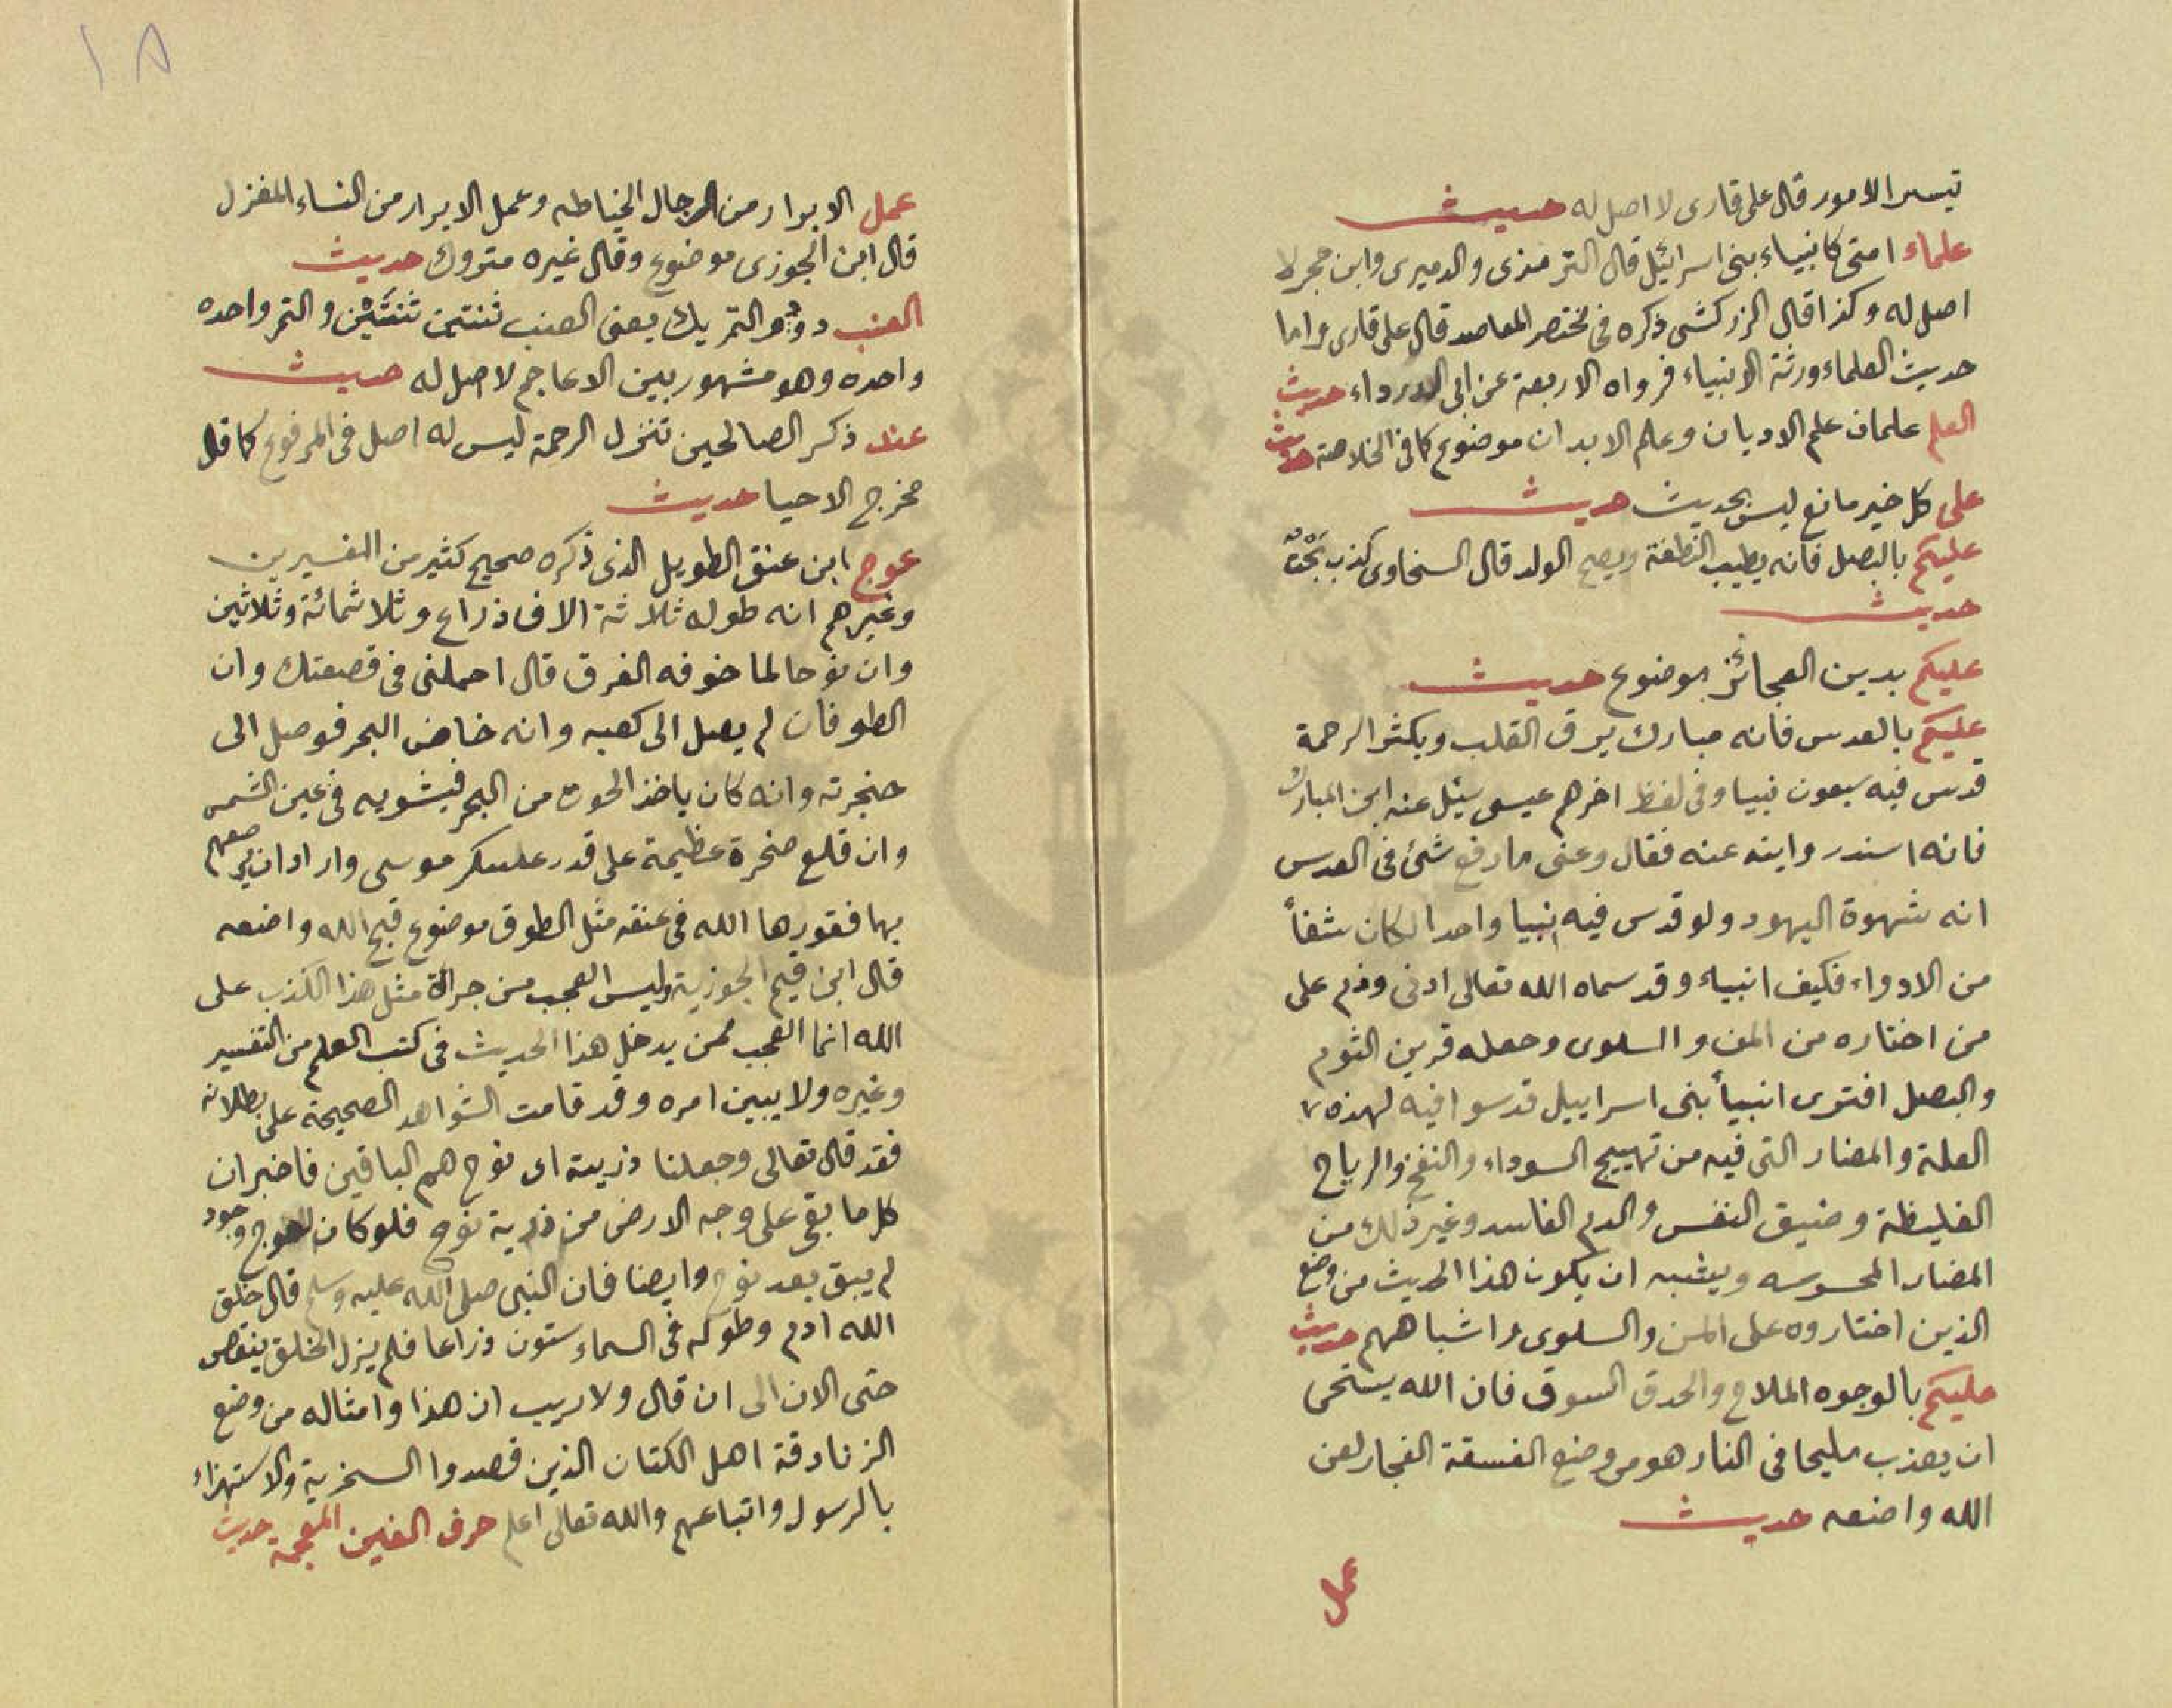 تيسر الامور قال على قارى لا اصل له حديث
علماء امتى كانبياء بنى اسرائيل قال الترمذى والدميرى وابن حجر لا
اصل له وكذا قال الزركشى ذكره فى مختصر المقاصد قال على قارى واما
حديث العلماء ورثة الانبياء فرواه الاربعة عن ابى الدرداء حديث
العلم علمان علم الاديان وعلم الابدان موضوع كما فى الخلاصة حديث
على كل خير مانع ليس بحديث حديث
عليكم بالبصل فانه يطيب النطفة ويصح الولد قال السخاوى كذب بحت
حديث
عليكم بدين العجائز موضوع حديث
عليكم بالعدس فانه مبارك يرق القلب ويكثر الرحمة
قدس فيه سبعون نبيا وفى لفظ اخرهم عيسى سئل عنه ابن المبارك
فانه اسند روايته عنه فقال وعنى ما رفع شئ فى العدس
انه شهوة اليهود ولو قدس فيه نبيا واحدا لكان شفأ
من الادواء فكيف انبياء وقد سماه الله تعالى ادنى وذم على
من اختاره من المن والسلوى وجعله قرين الثوم
والبصل افترى انبيأ بنى اسراييل قدسوا فيه لهذه
العلة والمضار التى فيه من تهييج السوداء والنفخ والرياح
الغليظة وضيق النفس والدم الفاسد وغير ذلك من
المضار المحسوسه ويشبه ان يكون هذا الحديث من وضع
الذين اختاروه على المن والسلوى واشباههم حديث
عليكم بالوجوه الملاح والحدق السود فان الله يستحى
ان يعذب مليحا فى النار هو من وضع الفسقة الفجار لعن
الله واضعه حديث
عمل
١٨
عمل الابرار من الرجال الخياطه وعمل الابرار من النساء المغزل
قال ابن الجوزى موضوع وقال غيره متروك حديث
العنب دو دو والتمر يك يعنى العنب ثنتين ثنتين والتمر واحده
واحده وهو مشهور بين الاعاجم لا اصل له حديث
عند ذكر الصالحين تنزل الرحمة ليس له اصل فى المرفوع كما قال
مخرج الاحيا حديث
عوج ابن عنق الطويل الذى ذكره صحيح كثير من المفسيرين
وغيرهم انه طوله ثلاثة الاف ذراع وثلاثمائة وثلاثين
وان نوحا لما خوفه الغرق قال احملنى فى قصعتك وان
الطوفان لم يصل الى كعبه وانه خاض البحر فوصل الى
حنجرته وانه كان ياخذ الحوت من البحر فيشويه فى عين الشمس
وان قلع صخرة عظيمة على قدر عسكر موسى واراد ان يرضعهم
بها فقورها الله فى عنقه مثل الطوق موضوع قبح الله واضعه
قال ابن قيم الجوزية وليس العجب من جرأة مثل هذا الكذب على
الله انما العجب ممن يدخل هذا الحديث فى كتب العلم من التفسير
وغيره ولا يبين امره وقد قامت الشواهد الصحيحة على بطلانه
فقد قال تعالى وجعلنا ذريته اى نوح هم الباقين فاخبر ان
كل ما بقى على وجه الارض من ذرية نوح فلو كان لعوج وجود
لم يبق بعد نوح وايضا فان النبى صلى الله عليه وسلم قال خلق
الله ادم وطوله فى السماء ستون ذراعا فلم يزل الخلق ينقص
حتى الان الى ان قال ولا ريب ان هذا وامثاله من وضع
الزنادقة اهل الكتان الذين قصدوا السخرية والاستهزاء
بالرسول واتباعهم والله تعالى اعلم حرف الغين المعجمة حديث